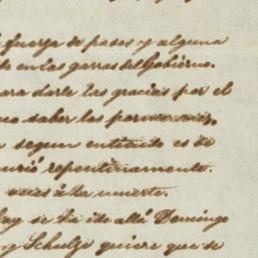 fuerza de pasos y alguna
en las garras del Gobierno.
para darle las gracias por el
saber los pormenores,
segun entiendo es de
murió repentinamente.
a la muerte.
se ha ido allá Domingo
y Schulze quiere que se